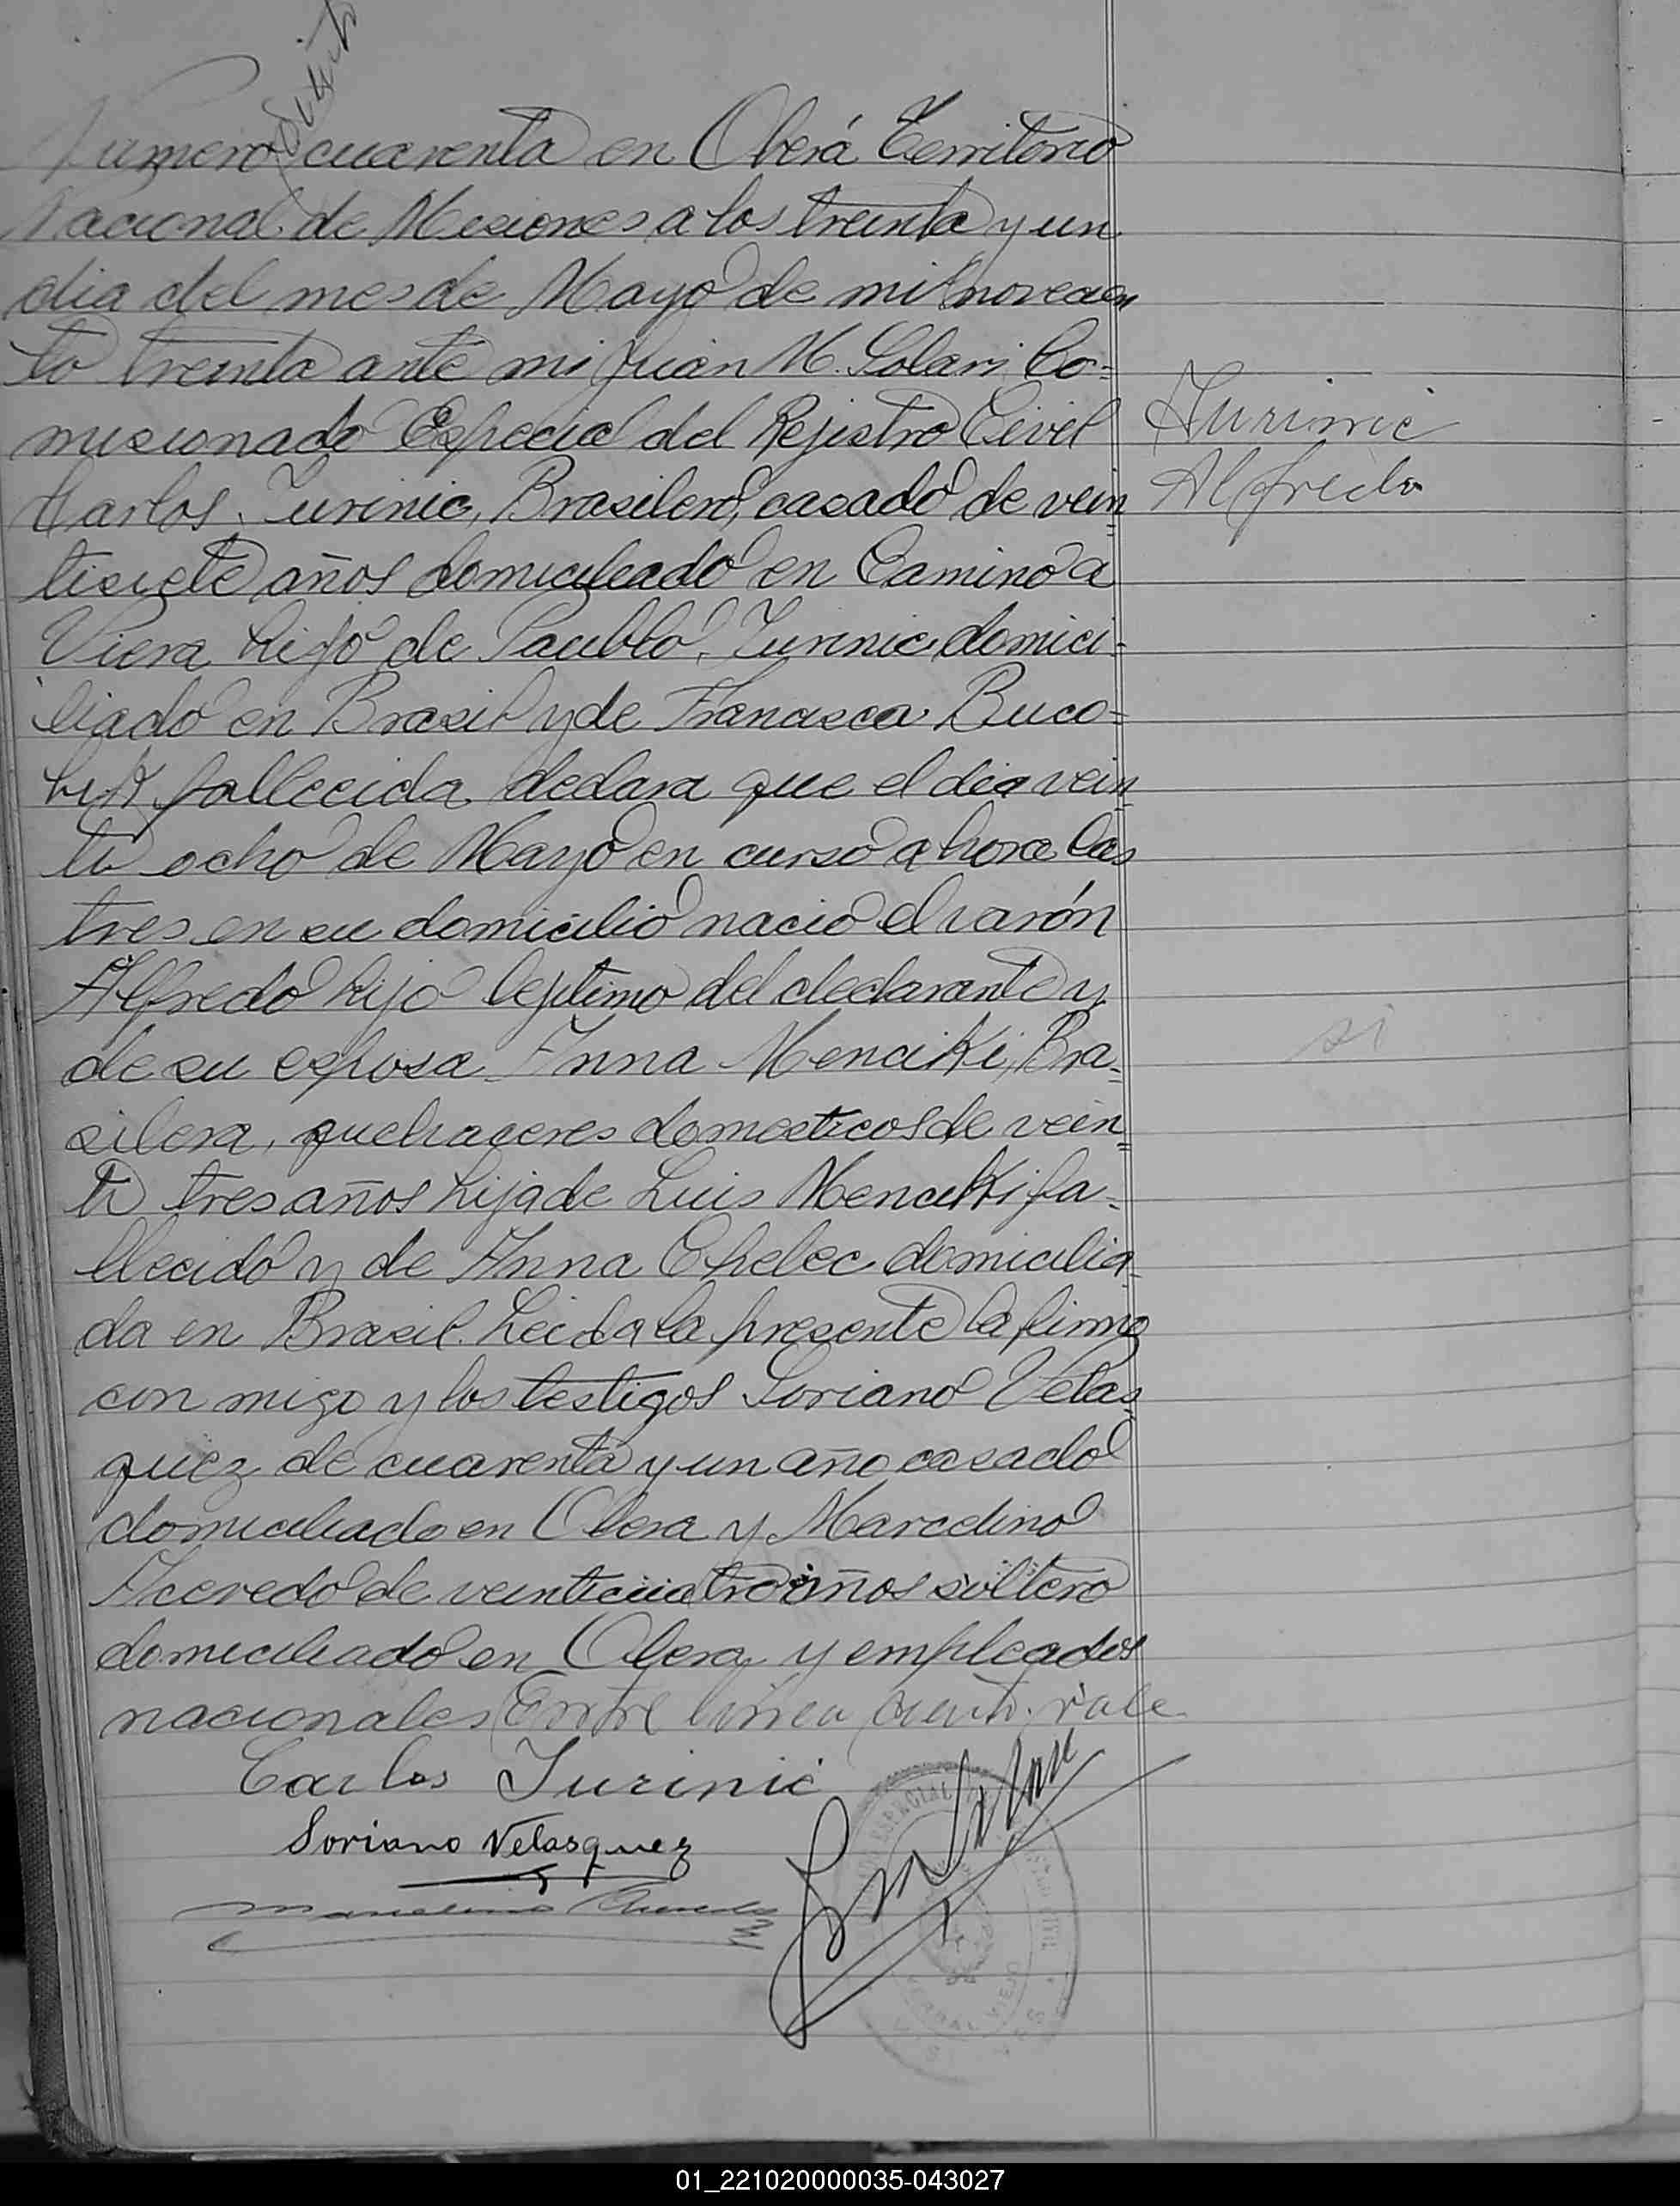 ciento
Numero cuarenta en Oberá Territorio
Nacional de Misiones a los treinta y un
dia del mes de Mayo de mil novecien
to treinta ante mi Juan M. Solari Co=
misionado Especial del Rejistro Civil
Carlos Jurinic, Brasilero, casado de vein
tisiete años domiciliado en Camino a
Viera hijo de Paublo Jurinic domici=
liado en Brasil y de Francisca Buco=
fallecida declara que el dia vein
ti ocho de Mayo en curso a hora las
tres en su domicilio nacio el varón
Alfredo hijo lejitimo del declarante y
de su esposa Anna Menciki, Bra=
silera, quehaceres domesticos de vein
ti tres años hija de Luis Menciki fa=
llecido y de Anna Chelec domicilia
da en Brasil. Leida la presente la firma
con migo y los testigos Soriano Velas
quez de cuarenta y un año casado
domiciliado en Obera y Marcelino
Acevedo de veinticuatro años soltero
domiciliado en Obera y empleados
nacionales Entre linea ciento. vale
Carlos Jurinić
Soriano Velasquez
Marcelino Acevedo
Jurinic
Alfredo
si
ESPECIAL
CIVIL
YERBAL VIEJO
01_221020000035-043027